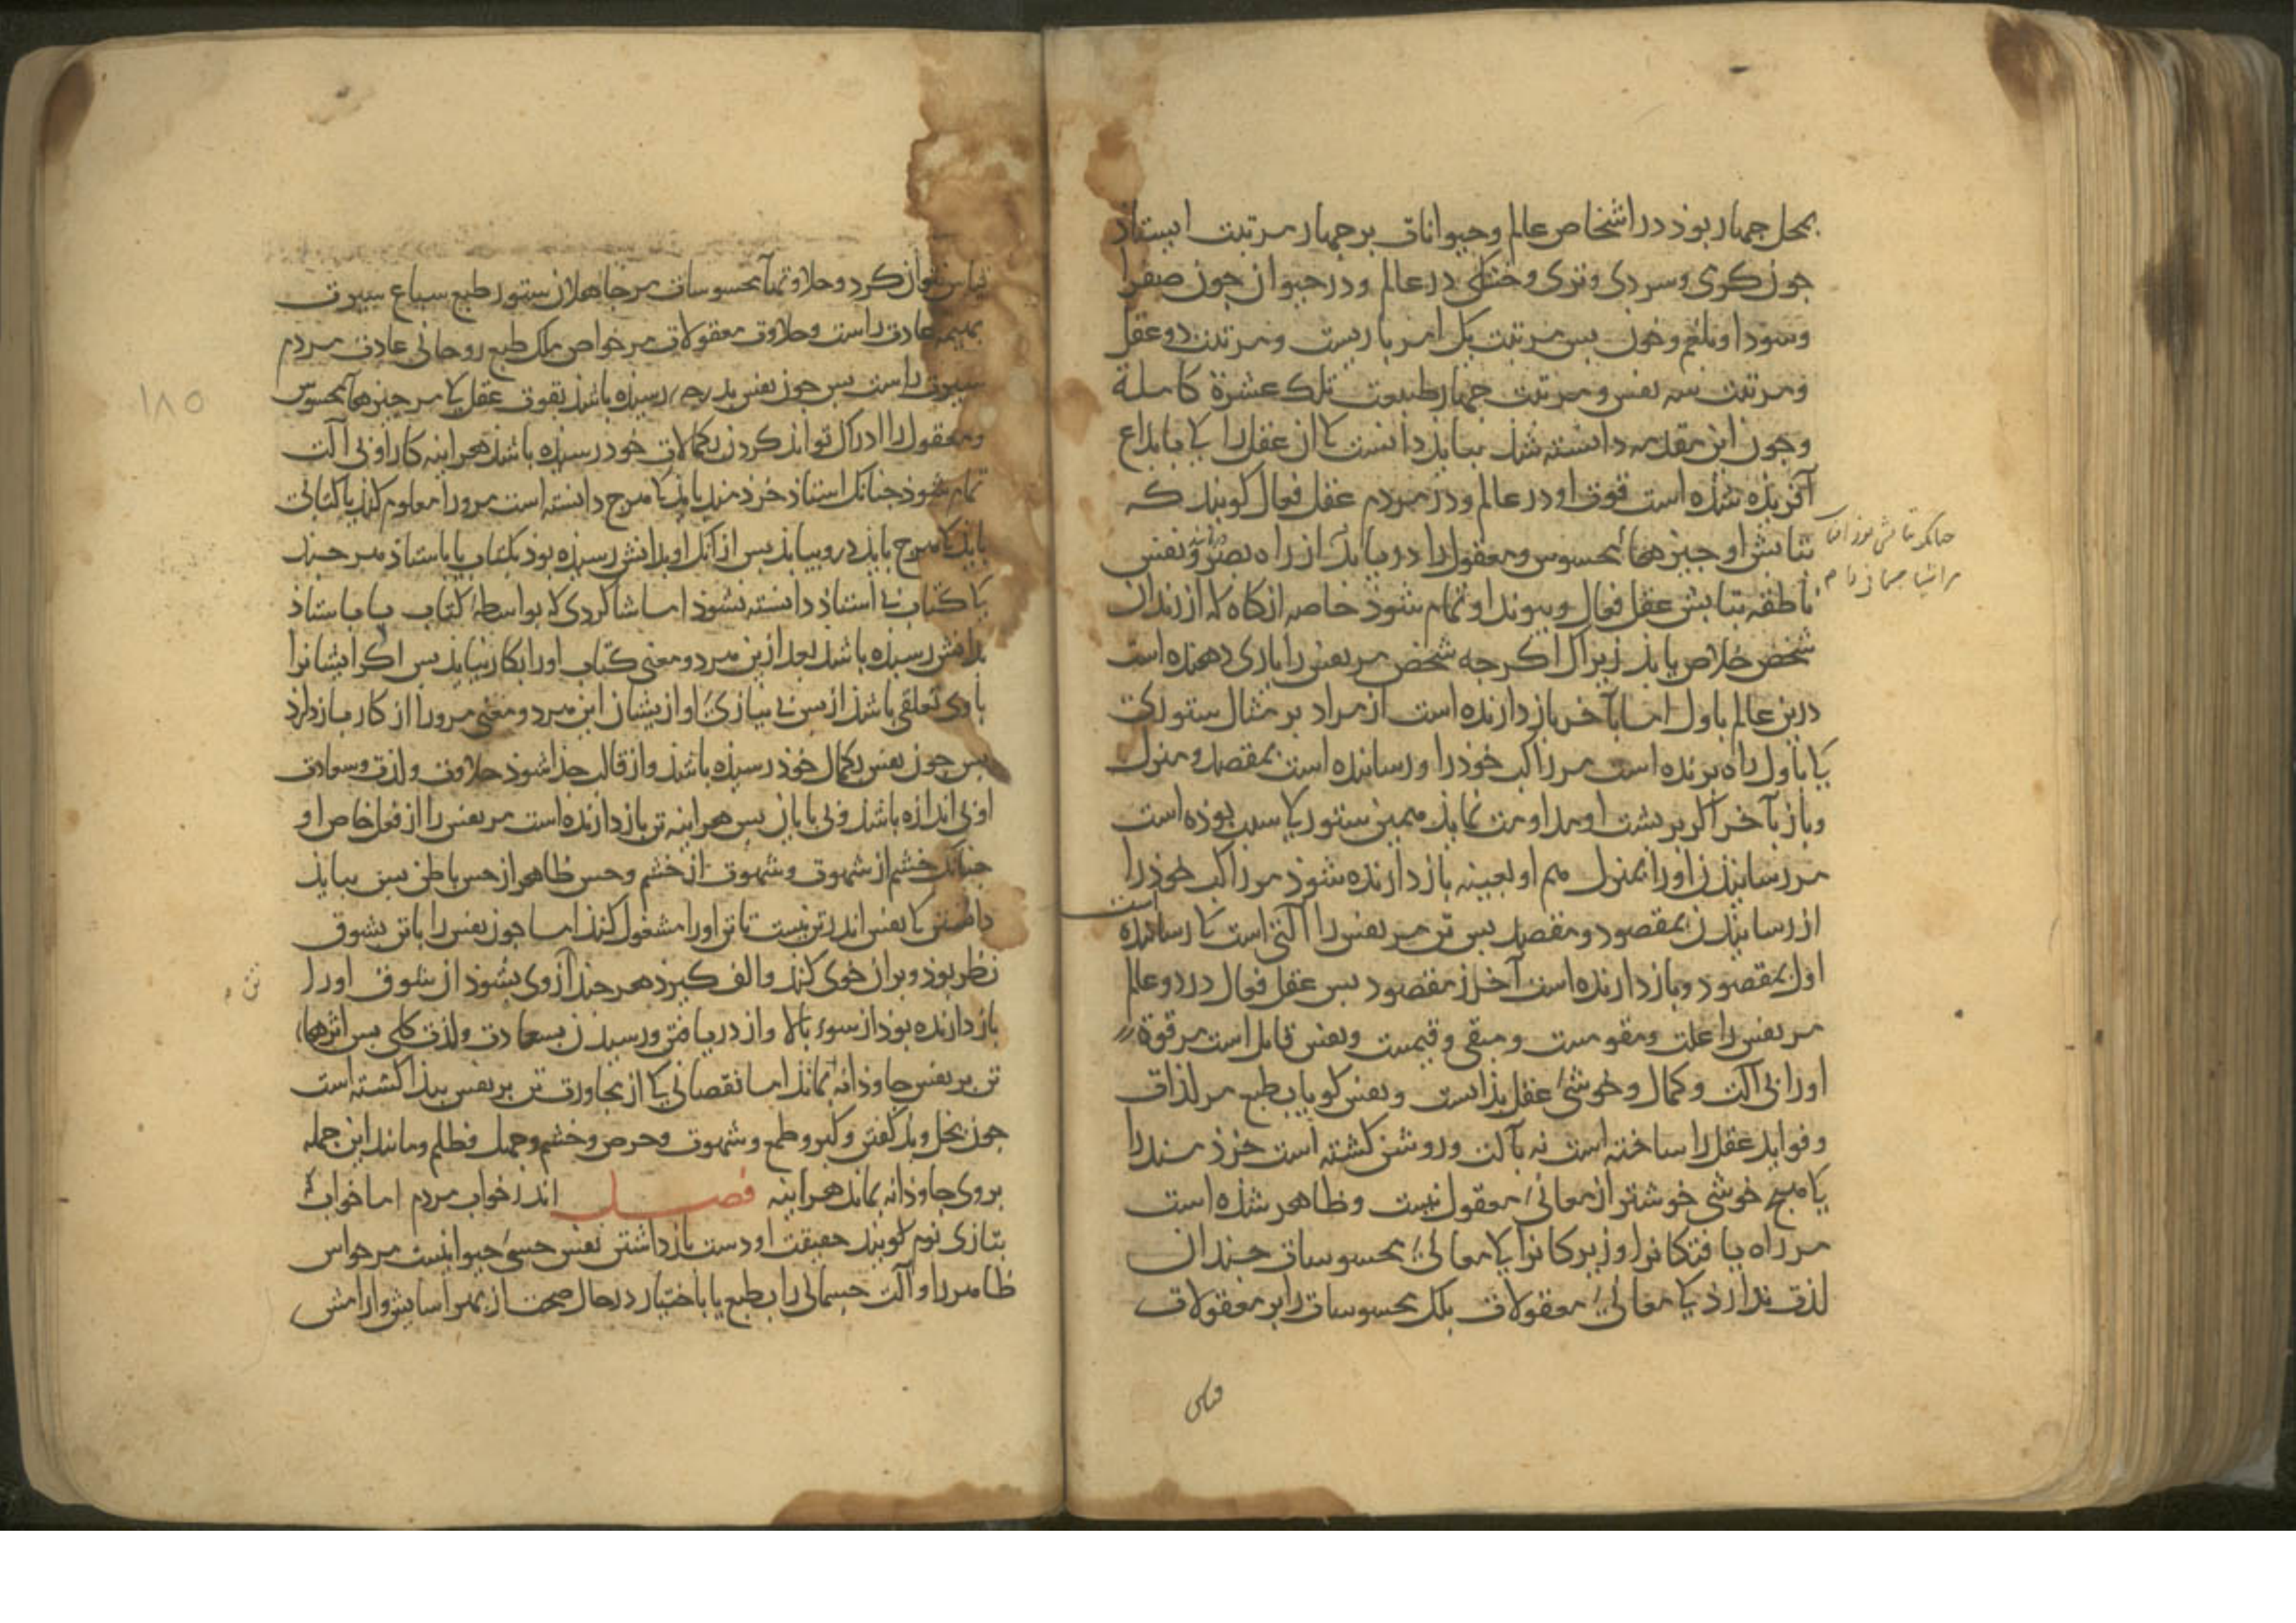 بمحل جهار بوذ در اشخاص عالم و حیوانات بر جهار مرتبت ایستاذ
جون کرمی و سردی و تری و خشکی در عالم و در حیوان جون صفرا
و سودا و بلغم و خون بس مرتبت یک امر باریست و مرتبت دو عقل
و مرتبت سه نفس و مرتبت جهار طبیعت تلک عشرة کاملة
و جون این مقدمه دانسته شذ ببایذ دانست کا از عقل را کا بابداع
آفریذه شذه است قوت او در عالم و در مردم عقل فعال کویند که
بتابش او جیزهاء محسوس و معقول را دریابذ از راه بصر و نفس
ناطقه بتابش عقل فعال و بیوند او تمام شوذ خاصه ازکاه که از زندان
شخص خلاص یابذ زیراک اکرجه شخص مر نفس را یاری دهنده است
درین عالم باول اما بآخر باز دارنده است از مراد بر مثال ستوری
کا باول راه برنده است مر راکب خوذ را و رساننده است بمقصد و منزل
و باز بآخر اکر بر بشت او مداومت نمایذ همین ستور کا سبب بوذه است
مر رسانیدن او را بمنزل هم او بعینه باز دارنده شوذ مر راکب خوذ را
از رسانیدن بمقصود و مقصد بس تن مر نفس را آلتی است کا رساننده است
اول بمقصود و باز دارنده است آخر از مقصود بس عقل فعال در دو عالم
مر نفس را علت و مقومست و مبقی و قیمست و نفس قابل است مر قوة
او را بی آلت و کمال و خوشی عقل بذاتست و نفس کویا بطبع مر لذات
و فواید عقل را ساخته است نه بآلت و روشن کشته است خرذمند را
کا هیج خوشی خوشتر از معانی معقول نیست و ظاهر شذه است
مر راه یافتکانرا و زیرکانرا کا معانی محسوسات جندان
لذت ندارذ کا معانی معقولات بلک محسوسات را بر معقولات
جنانکه تابش نور آفتاب
مر اشیا جسمانی را م
قیاس نتوان کرد و حلاوتهاء محسوسات مر جاهلان ستور طبع سباع سیرت
بهیمه عادت راست و حلاوت معقولات مر خواص ملک طبع روحانی عادت مردم
سیرت راست بس جون نفس بذین درجه رسیذه باشذ بقوت عقل کا مر جیزهاء محسوس
و معقول را ادراک تواند کردن بکمالات خوذ رسیذه باشذ هراینه کار او بی آلت
تمام شوذ جنانک استاذ خرذمند
بایذ کا هرج بایذ درو بیابذ بس از آنک او بدانش رسیذه بوذ بکتاب یا باستاذ هرجند
با کتاب بی استاذ دانسته نشوذ اما شاکردی که بواسطه کتاب یا باستاذ
بدانش رسیذه باشذ بعد ازین هر دو معنی کتاب او را بکار نیایذ بس اکر ایشانرا
با وی تعلقی باشذ از بس بی نیازی او از یشان این هر دو معنی مرو را از کار باز دارذ
بس جون نفس بکمال خوذ رسیذه باشذ و از قالب جذا شوذ حلاوت و لذت و سعادت
او بی اندازه باشذ و بی بایان بس هراینه تن باز دارنده است مر نفس را از فعل خاص او
جنانک خشم از شهوت و شهوت از خشم و حس ظاهر از حس باطن بس ببایذ
دانستن کا نفس اندر تن نیست تا تن او را مشغول کند اما جون نفس را با تن بشوق
نظر بوذ و بر آن خوی کند و الف کیرذ هرجند از وی بشوذ از شوق او را
باز دارنده بوذ از سوء بالا و از دریافتن و رسیدن بسعادت و لذت کلی بس اثرهاء
تن بر نفس جاوذانه نماند اما نقصانی کا از مجاورت تن بر نفس بیذا کشته است
جون بخل و بذ کفتن و کبر و طمع و شهوت و حرص و خشم و جهل و ظلم و مانند این جمله
بر وی جاوذانه بماند هراینه فصل اندر خواب مردم اما خواب
بتازی نوم کویند حقیقت او دست باز داشتن نفس حسی حیوانیست مر حواس
ظاهر را و آلت جسمانی را بطبع یا باختیار در حال صحت از بهر آسایش و آرامش
۱۸۵
تن م